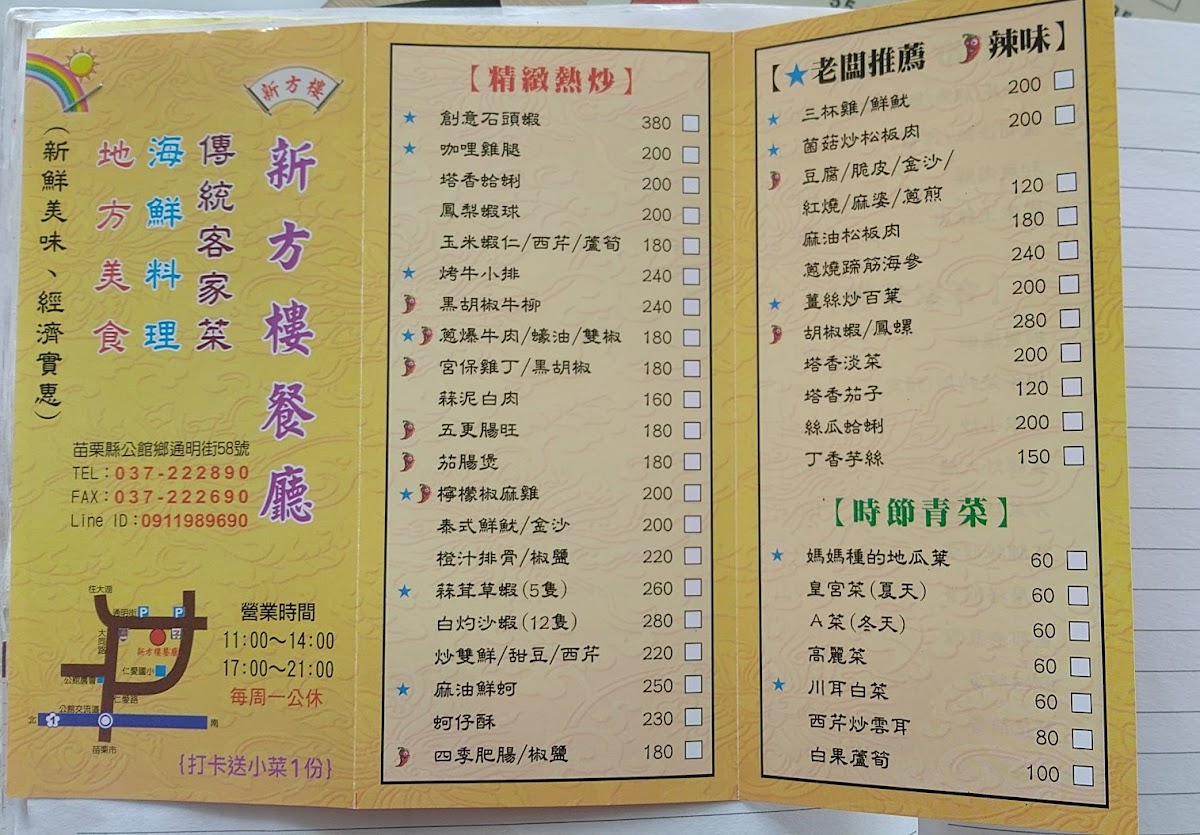 新方樓
新方樓餐廳
傳統客家菜
海鮮料理
地方美食
(新鮮美味、經濟實惠)
苗栗縣公館鄉通明街58號
TEL：037-222890
FAX：037-222690
Line ID：0911989690
往大湖
通明街 P P
大同路
新方樓餐廳
仁愛國小
公館農會
仁愛路
公館交流道
北 1 南
苗栗市
營業時間
11:00～14:00
17:00～21:00
每周一公休
{打卡送小菜1份}
【精緻熱炒】
★ 創意石頭蝦 380
★ 咖哩雞腿 200
塔香蛤蜊 200
鳳梨蝦球 200
玉米蝦仁/西芹/蘆筍 180
★ 烤牛小排 240
黑胡椒牛柳 240
★ 蔥爆牛肉/蠔油/雙椒 180
宮保雞丁/黑胡椒 180
蒜泥白肉 160
五更腸旺 180
茄腸煲 180
★ 檸檬椒麻雞 200
泰式鮮魷/金沙 200
橙汁排骨/椒鹽 220
★ 蒜茸草蝦(5隻) 260
白灼沙蝦(12隻) 280
炒雙鮮/甜豆/西芹 220
★ 麻油鮮蚵 250
蚵仔酥 230
四季肥腸/椒鹽 180
【★老闆推薦 辣味】
★ 三杯雞/鮮魷 200
★ 菌菇炒松板肉 200
豆腐/脆皮/金沙/
紅燒/麻婆/蔥煎 120
麻油松板肉 180
蔥燒蹄筋海參 240
★ 薑絲炒百葉 200
胡椒蝦/鳳螺 280
塔香淡菜 200
塔香茄子 120
絲瓜蛤蜊 200
丁香芋絲 150
【時節青菜】
★ 媽媽種的地瓜葉 60
皇宮菜(夏天) 60
A菜(冬天) 60
高麗菜 60
★ 川耳白菜 60
西芹炒雲耳 80
白果蘆筍 100